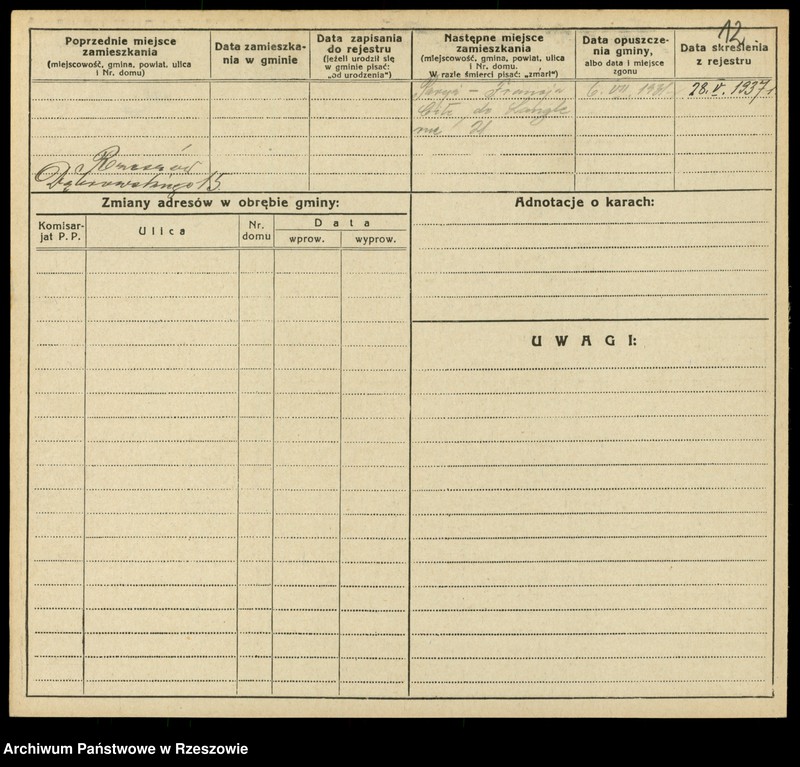 12
Poprzednie miejsce
zamieszkania
(miejscowość, gmina, powiat, ulica
i Nr. domu)
Data zamieszka-
nia w gminie
Data zapisania
do rejestru
(jeżeli urodził się
w gminie pisać:
„od urodzenia")
Następne miejsce
zamieszkania
(miejscowość, gmina, powiat, ulica
i Nr. domu.
W razie śmierci pisać: „zmarł")
Data opuszcze-
nia gminy,
albo data i miejsce
zgonu
Data skreślenia
z rejestru
Rzeszów
Dąbrowskiego 15
– Francja
Cité de
28. V. 1937 r
Zmiany adresów w obrębie gminy:
Komisar-
jat P. P.
Ulica
Nr.
domu
Data
wprow.
wyprow.
Adnotacje o karach:
UWAGI:
Archiwum Państwowe w Rzeszowie